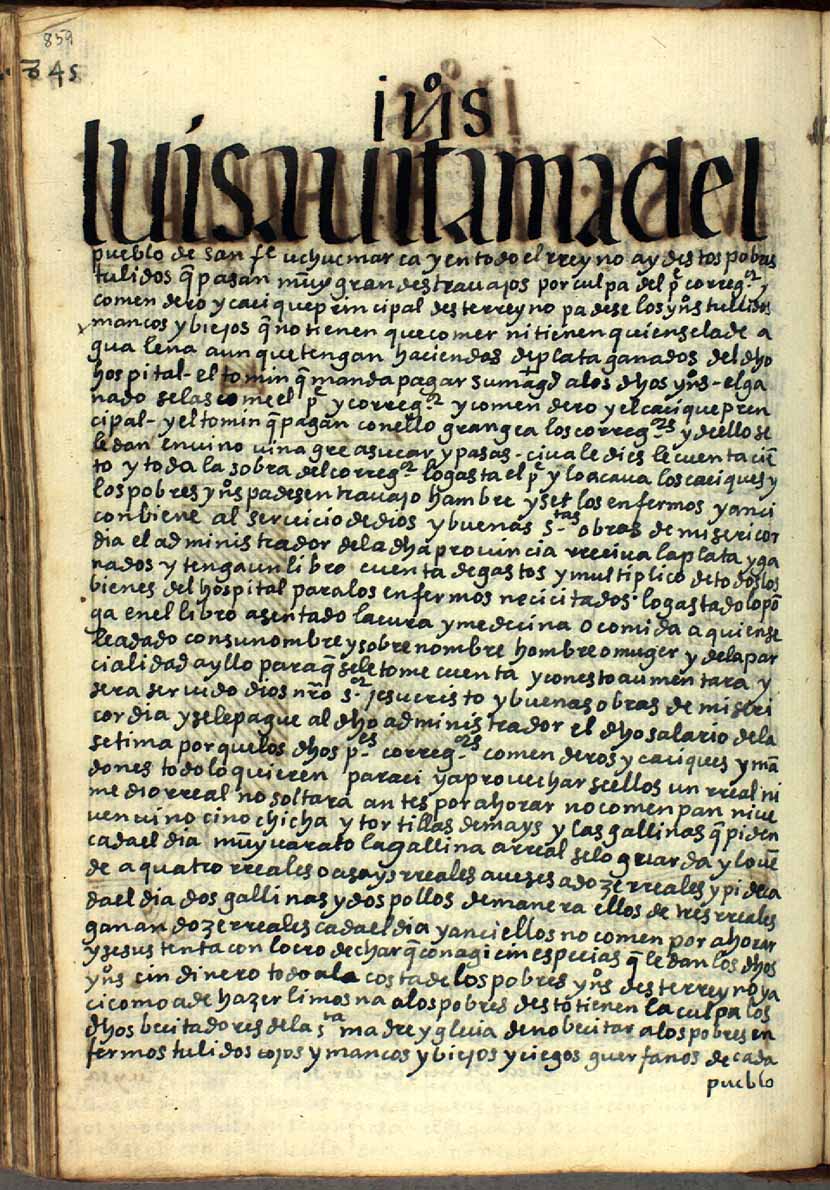 859
845
iūs
luís auitama del
pueblo de san fe uchucmarca y en todo el rreyno ay destos pobres
tulidos q̄ pasan muy grandes trauajos por culpa del pe correg.or y
comendero y cacique prencipal desterreyno padese los yn̄s tullidos
mancos y biejos q̄ no tienen que comer ni tienen quien selade a
gua leña aunque tengan haciendas de plata ganados del dho
hospital - el tomin q̄ manda pagar su magd a los dhos yn̄s - el ga
nado selas come el pe y correg.or y comendero y el cacique pren
cipal - y el tomin q̄ pagan con ello grangea los correg.ors y dello se
le dan en uino uinagre asucar y pasas - ciua le dies le cuenta ciē
to y toda la sobra del correg.or lo gasta el pe y lo acaua los caciques y
los pobres yn̄s padesen trauajo hambre y set los enfermos y anci
conbiene al seruicio de dios y buenas s.tas obras de misericor
dia el administrador de la dha prouincia rreciua la plata y ga
nados y tenga un libro cuenta de gastos y multiplico de todos los
bienes del hospital para los enfermos necicitados · lo gastado lo pō
ga en el libro asentado la cura y medecina o comida a quien se
le a dado con su nombre y sobrenombre hombre o muger y de la par
cialidad ayllo para q̄ se le tome cuenta y con esto aumentara y
sera seruido dios nr̄o s.or jesucristo y buenas obras de miseri
cordia y se le pague al dho administrador el dho salario de la
setima porque los dhos p.es correg.ors comenderos y caciques y mā
dones todo lo quieren para ci y aprovecharse ellos un rreal ni
medio rreal no soltara antes por ahorar no comen pan ni ue
uen uino cino chicha y tortillas de mays y las gallinas q̄ piden
cada el dia muy uarato la gallina a rreal se lo guarda y lo uen
de a quatro rreales o a says rreales a ueses a doze rreales y pide ca
da el dia dos gallinas y dos pollos de manera ellos de tres rreales
ganan doze rreales cada el dia y anci ellos no comen por ahorar
y se sustenta con locro de charq̄ con agi cin especias q̄ le dan los dhos
yn̄s cin dinero todo a la costa de los pobres yn̄s desterreyno y a
ci como a de hazer limosna a los pobres desto tienen la culpa los
dhos becitadores de la s.ta madre yglecia de no becitar a los pobres en
fermos tulidos cojos y mancos y biejos y ciegos guerfanos de cada
pueblo